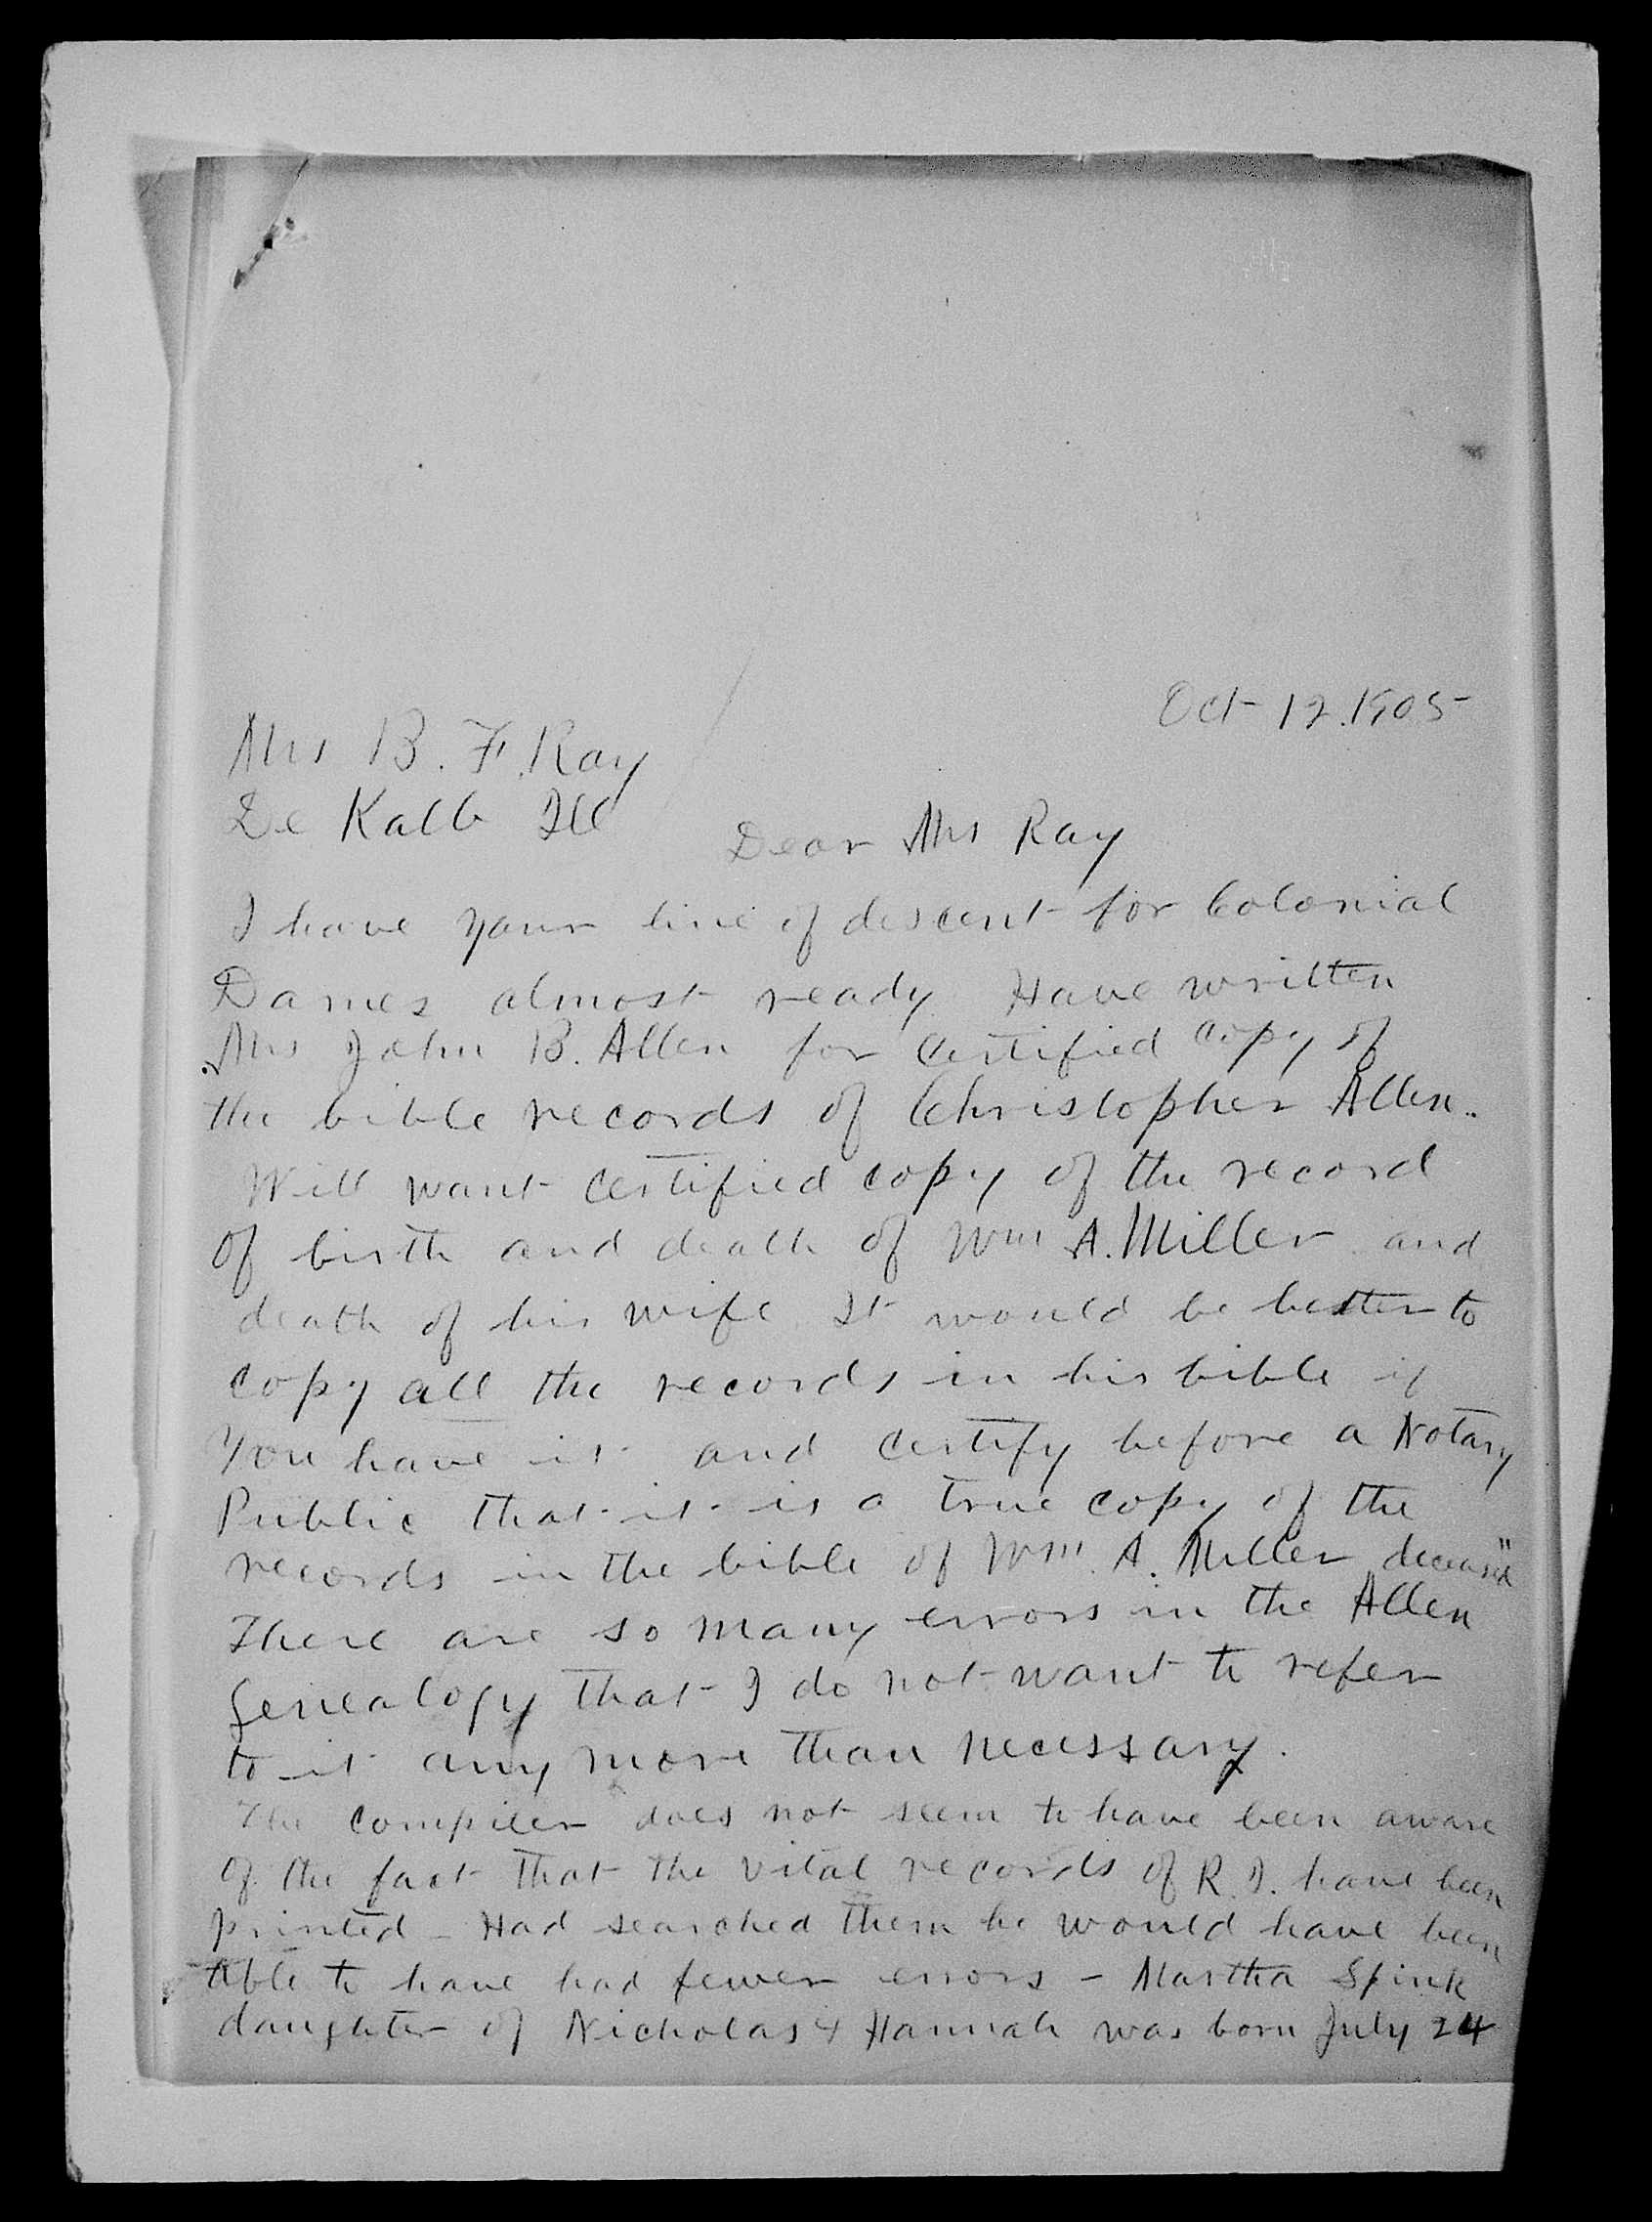 Oct 12. 1905
Mrs B. F. Ray
De Kalb Ill
Dear Mrs Ray
I have your line of descent for Colonial
Dames almost ready Have written
Mrs John B. Allen for certified copy of
the bible records of Christopher Allen.
Will want certified copy of the record
of birth and death of Wm A. Miller and
death of his wife It would be better to
copy all the records in his bible if
you have it and certify before a Notary
Public that it is a true copy of the
records in the bible of Wm. A. Miller deceased"
There are so many errors in the Allen
Genealogy that I do not want to refer
to it any more than necessary.
The compiler does not seem to have been aware
of the fact that the vital records of R. I. have been
printed - Had searched them he would have been
able to have had fewer errors - Martha Spink
daughter of Nicholas & Hannah was born July 24